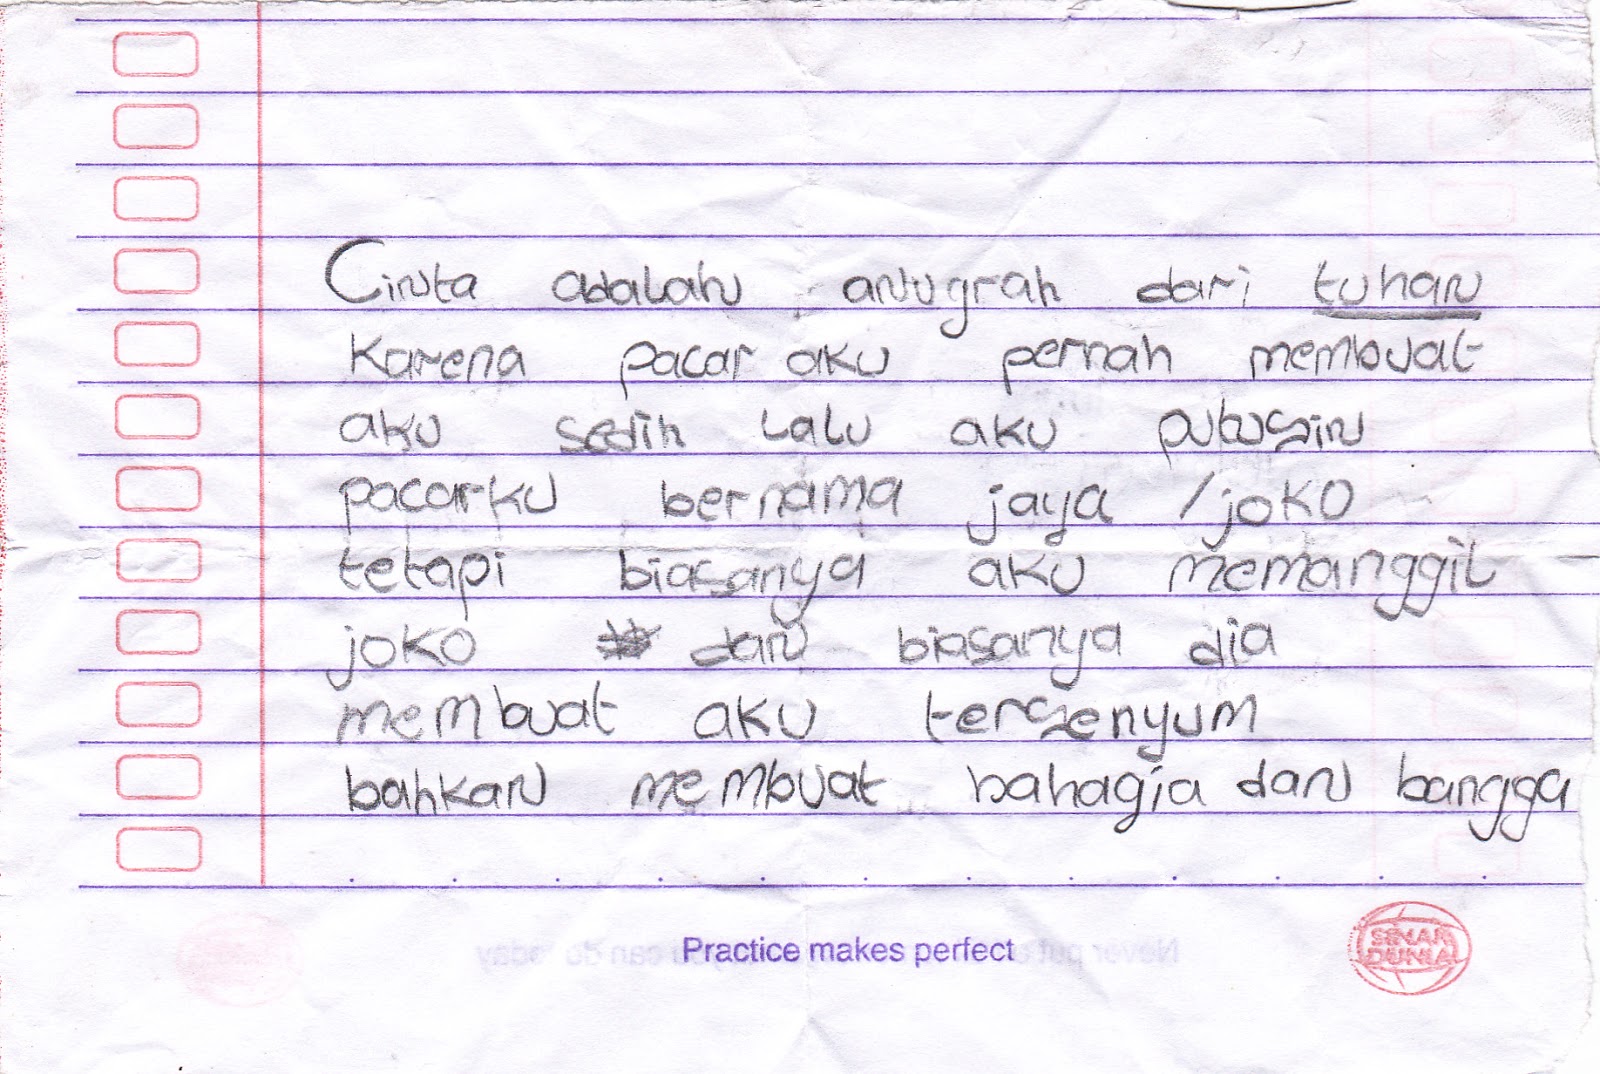 Cinta adalah anugrah dari tuhan
Karena pacar aku pernah membuat
aku sedih lalu aku putusin
pacarku bernama jaya / joko
tetapi biasanya aku memanggil
joko dan biasanya dia
membuat aku tersenyum
bahkan membuat bahagia dan bangga
Practice makes perfect
SINAR
DUNIA